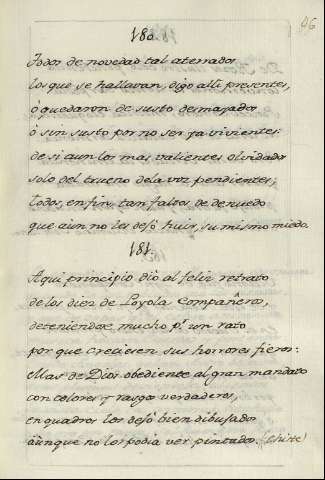 46
180.
Todos de novedad tal aterrados
los que se hallavan, digo alli presentes,
ò quedaron de susto desmayados
ò sin susto por no ser ya vivientes:
de si aun los mas valientes olvidados
solo del trueno de la voz pendientes;
todos, en fin, tan faltos de denuedo
que aun no les dejò huir, su mismo miedo.
181.
Aqui principio diò al feliz retrato
de los diez de Loyola Compañeros,
deteniendose mucho pr. un rato
por que creciesen sus horrores fieros:
Mas de Dios obediente al gran mandato
con colores y rasgos verdaderos,
en quadros los dejò bien dibujados
aùnque no los podia ver pintados. (chiste)